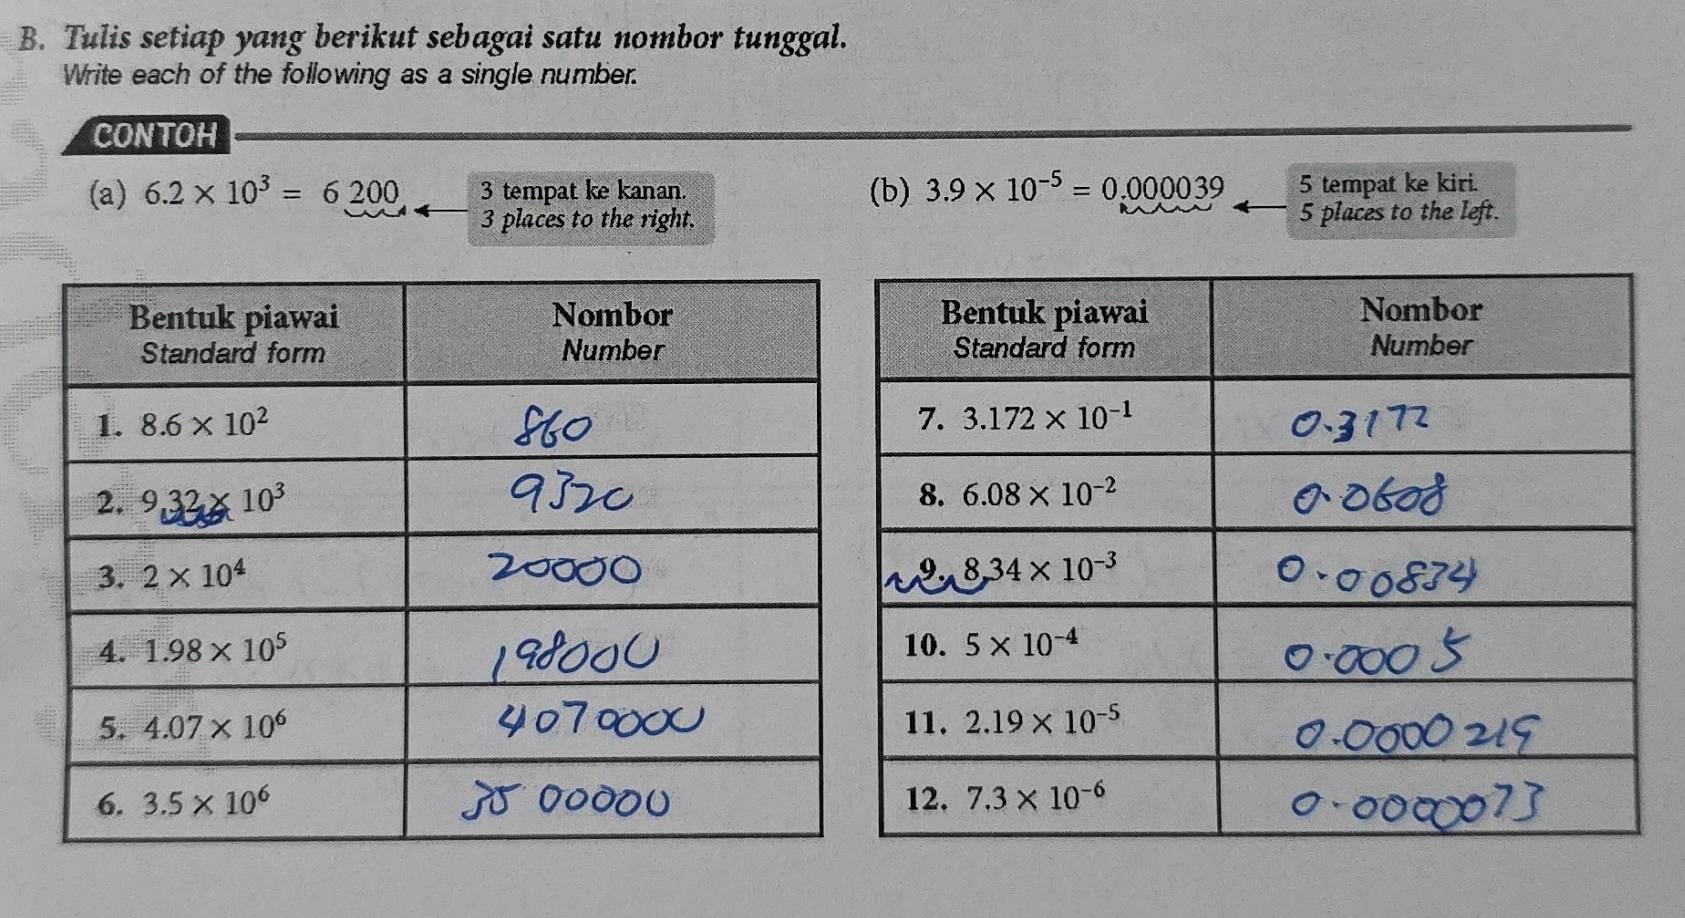 B. Tulis setiap yang berikut sebagai satu nombor tunggal.
Write each of the following as a single number.
CONTOH
(a) 6.2 × 10³ = 6 200
3 tempat ke kanan.
3 places to the right.
(b) 3.9 × 10⁻⁵ = 0.000039
5 tempat ke kiri.
5 places to the left.
Bentuk piawai
Standard form
Nombor
Number
1. 8.6 × 10² 860
2. 9.32 × 10³ 9320
3. 2 × 10⁴ 20000
4. 1.98 × 10⁵ 198000
5. 4.07 × 10⁶ 4070000
6. 3.5 × 10⁶ 3500000
Bentuk piawai
Standard form
Nombor
Number
7. 3.172 × 10⁻¹ 0.3172
8. 6.08 × 10⁻² 0.0608
9. 8.34 × 10⁻³ 0.00834
10. 5 × 10⁻⁴ 0.0005
11. 2.19 × 10⁻⁵ 0.0000219
12. 7.3 × 10⁻⁶ 0.0000073